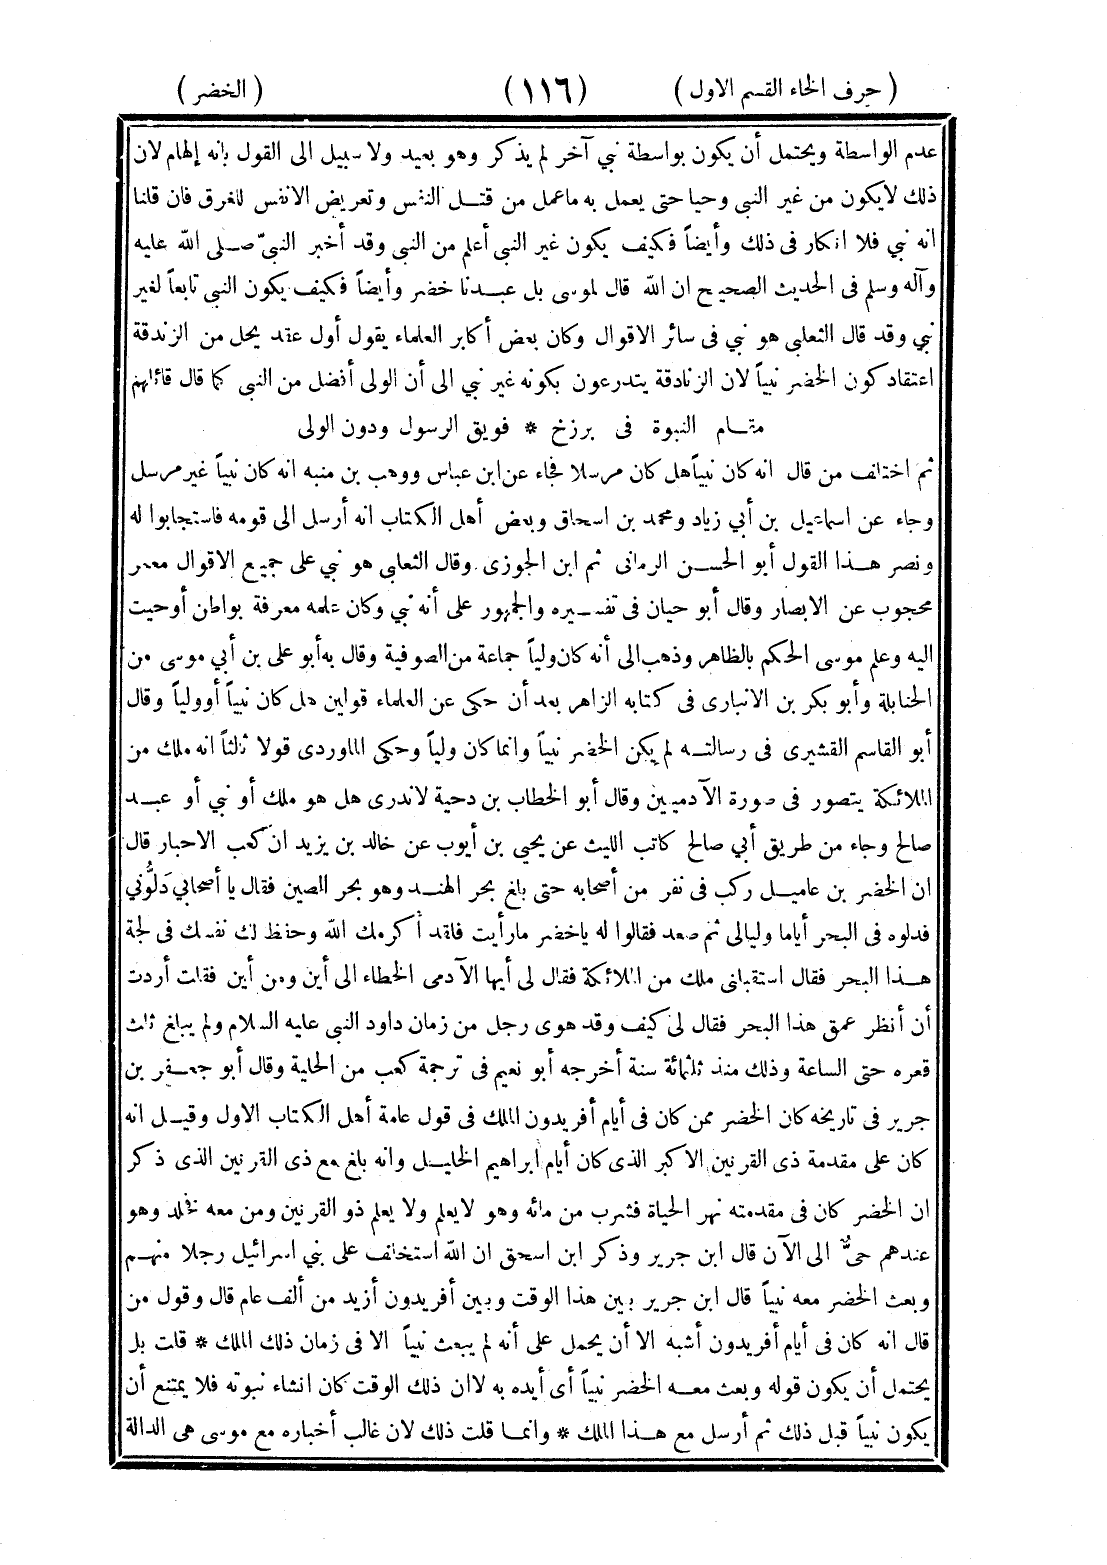 ( حرف الخاء القسم الاول ) (١١٦) ( الخضر )
عدم الواسطة ويحتمل أن يكون بواسطة نبي آخر لم يذكر وهو بعيد ولا سبيل الى القول بانه إلهام لان
ذلك لايكون من غير النبى وحيا حتى يعمل به ماعمل من قتـل النفس وتعريض الانفس للغرق فان قلنا
انه نبي فلا انكار فى ذلك وأيضاً فكيف يكون غير النبى أعلم من النبى وقد أخبر النبىّ صلى الله عليه
وآله وسلم فى الحديث الصحيح ان الله قال لموسى بل عبدنا خضر وأيضاً فكيف يكون النبى تابعاً لغير
نبي وقد قال الثعلبى هو نبي فى سائر الاقوال وكان بعض أكابر العلماء يقول أول عقد يحل من الزندقة
اعتقاد كون الخضر نبياً لان الزنادقة يتدرعون بكونه غير نبي الى أن الولى أفضل من النبى كما قال قائلهم
مقـام النبوة فى برزخ * فويق الرسول ودون الولى
ثم اختلف من قال انه كان نبياً هل كان مرسلا فجاء عن ابن عباس ووهب بن منبه انه كان نبياً غير مرسل
وجاء عن اسماعيل بن أبي زياد ومحمد بن اسحاق وبعض أهل الكتاب انه أرسل الى قومه فاستجابوا له
ونصر هـذا القول أبو الحسـن الرمانى ثم ابن الجوزى وقال الثعلبى هو نبي على جميع الاقوال معمر
محجوب عن الابصار وقال أبو حيان فى تفسـيره والجمهور على أنه نبي وكان علمه معرفة بواطن أوحيت
اليه وعلم موسى الحكم بالظاهر وذهب الى أنه كان ولياً جماعة من الصوفية وقال به أبو على بن أبي موسى من
الحنابلة وأبو بكر بن الانبارى فى كتابه الزاهر بعد أن حكى عن العلماء قولين هل كان نبياً أوولياً وقال
أبو القاسم القشيرى فى رسالتـه لم يكن الخضر نبياً وانما كان ولياً وحكى الماوردى قولا ثالثاً انه ملك من
الملائكة يتصور فى صورة الآدميـين وقال أبو الخطاب بن دحية لاندرى هل هو ملك أو نبي أو عبـد
صالح وجاء من طريق أبي صالح كاتب الليث عن يحيى بن أيوب عن خالد بن يزيد ان كعب الاحبار قال
ان الخضر بن عاميـل ركب فى نفر من أصحابه حتى بلغ بحر الهنـد وهو بحر الصين فقال يا أصحابي دَلُّوني
فدلوه فى البحر أياما وليالى ثم صعد فقالوا له ياخضر مارأيت فلقد أكرمك الله وحفظ لك نفسك فى لجة
هـذا البحر فقال استقبلنى ملك من الملائكة فقال لى أيها الآدمى الخطاء الى أين ومن أين فقلت أردت
أن أنظر عمق هذا البحر فقال لى كيف وقد هوى رجل من زمان داود النبى عليه السلام ولم يبلغ ثلث
قعره حتى الساعة وذلك منذ ثلثمائة سنة أخرجه أبو نعيم فى ترجمة كعب من الحلية وقال أبو جعـفر بن
جرير فى تاريخه كان الخضر ممن كان فى أيام أفريدون الملك فى قول عامة أهل الكتاب الاول وقيـل انه
كان على مقدمة ذى القرنين الاكبر الذى كان أيام ابراهيم الخليـل وانه بلغ مع ذى القرنين الذى ذكر
ان الخضر كان فى مقدمته نهر الحياة فشرب من مائه وهو لايعلم ولا يعلم ذو القرنين ومن معه فخلد وهو
عندهم حىٌّ الى الآن قال ابن جرير وذكر ابن اسحق ان الله استخلف على بني اسرائيل رجلا منهـم
وبعث الخضر معه نبياً قال ابن جرير بين هذا الوقت وبين أفريدون أزيد من ألف عام قال وقول من
قال انه كان فى أيام أفريدون أشبه الا أن يحمل على أنه لم يبعث نبياً الا فى زمان ذلك الملك * قلت بل
يحتمل أن يكون قوله وبعث معـه الخضر نبياً أى أيده به لاان ذلك الوقت كان انشاء نبوته فلا يمتنع أن
يكون نبياً قبل ذلك ثم أرسل مع هـذا الملك * وانمـا قلت ذلك لان غالب أخباره مع موسى هى الدالة